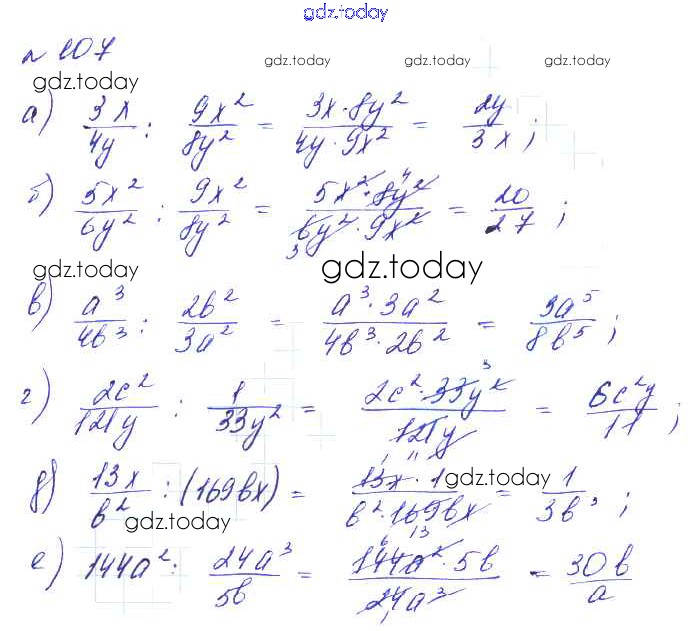 gdz.today
№ 107
gdz.today gdz.today gdz.today gdz.today
а) 3x/4y : 9x²/8y² = 3x·8y²/4y·9x² = 2y/3x ;
б) 5x²/6y² : 9x²/8y² = 5x²·8y² 4/6y²·9x² 3 = 20/27 ;
gdz.today gdz.today gdz.today
в) a³/4b³ : 2b²/3a² = a³·3a²/4b³·2b² = 3a⁵/8b⁵ ;
г) 2c²/121y : 1/33y² = 2c²·33y² 3/121y 11 = 6c²y/11 ;
д) 13x/b² : (169bx) = 13x·1/b²·169bx 13 = 1/3b³ ;
gdz.today gdz.today
е) 144a² : 24a³/5b = 6 144a²·5b/24a³ 1 = 30b/a